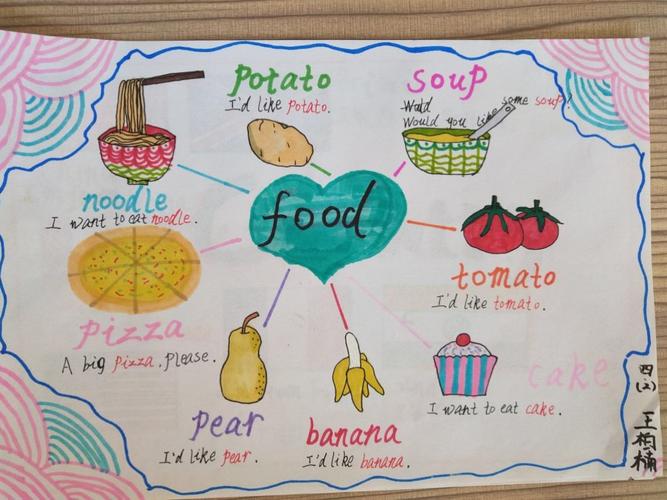 potato
I'd like potato.
soup
Would
Would you like some soup?
noodle
I want to eat noodle.
food
tomato
I'd like tomato.
pizza
A big pizza, please.
pear
I'd like pear.
banana
I'd like banana.
cake
I want to eat cake.
四(2)
王梅楠